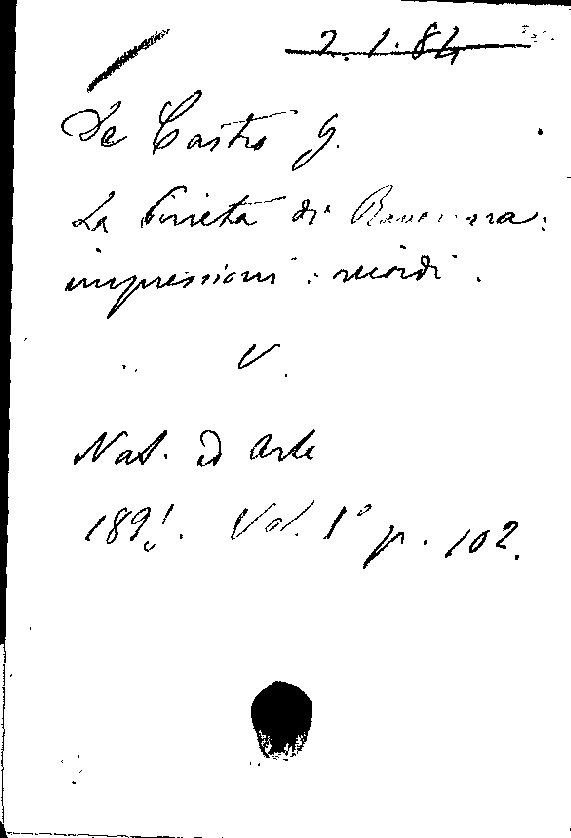 2.1.84
De Castro G.
La Pineta di Ravenna:
impressioni : ricordi.
V.
Nat. ed Arte
1891. Vol. 1° p. 102.